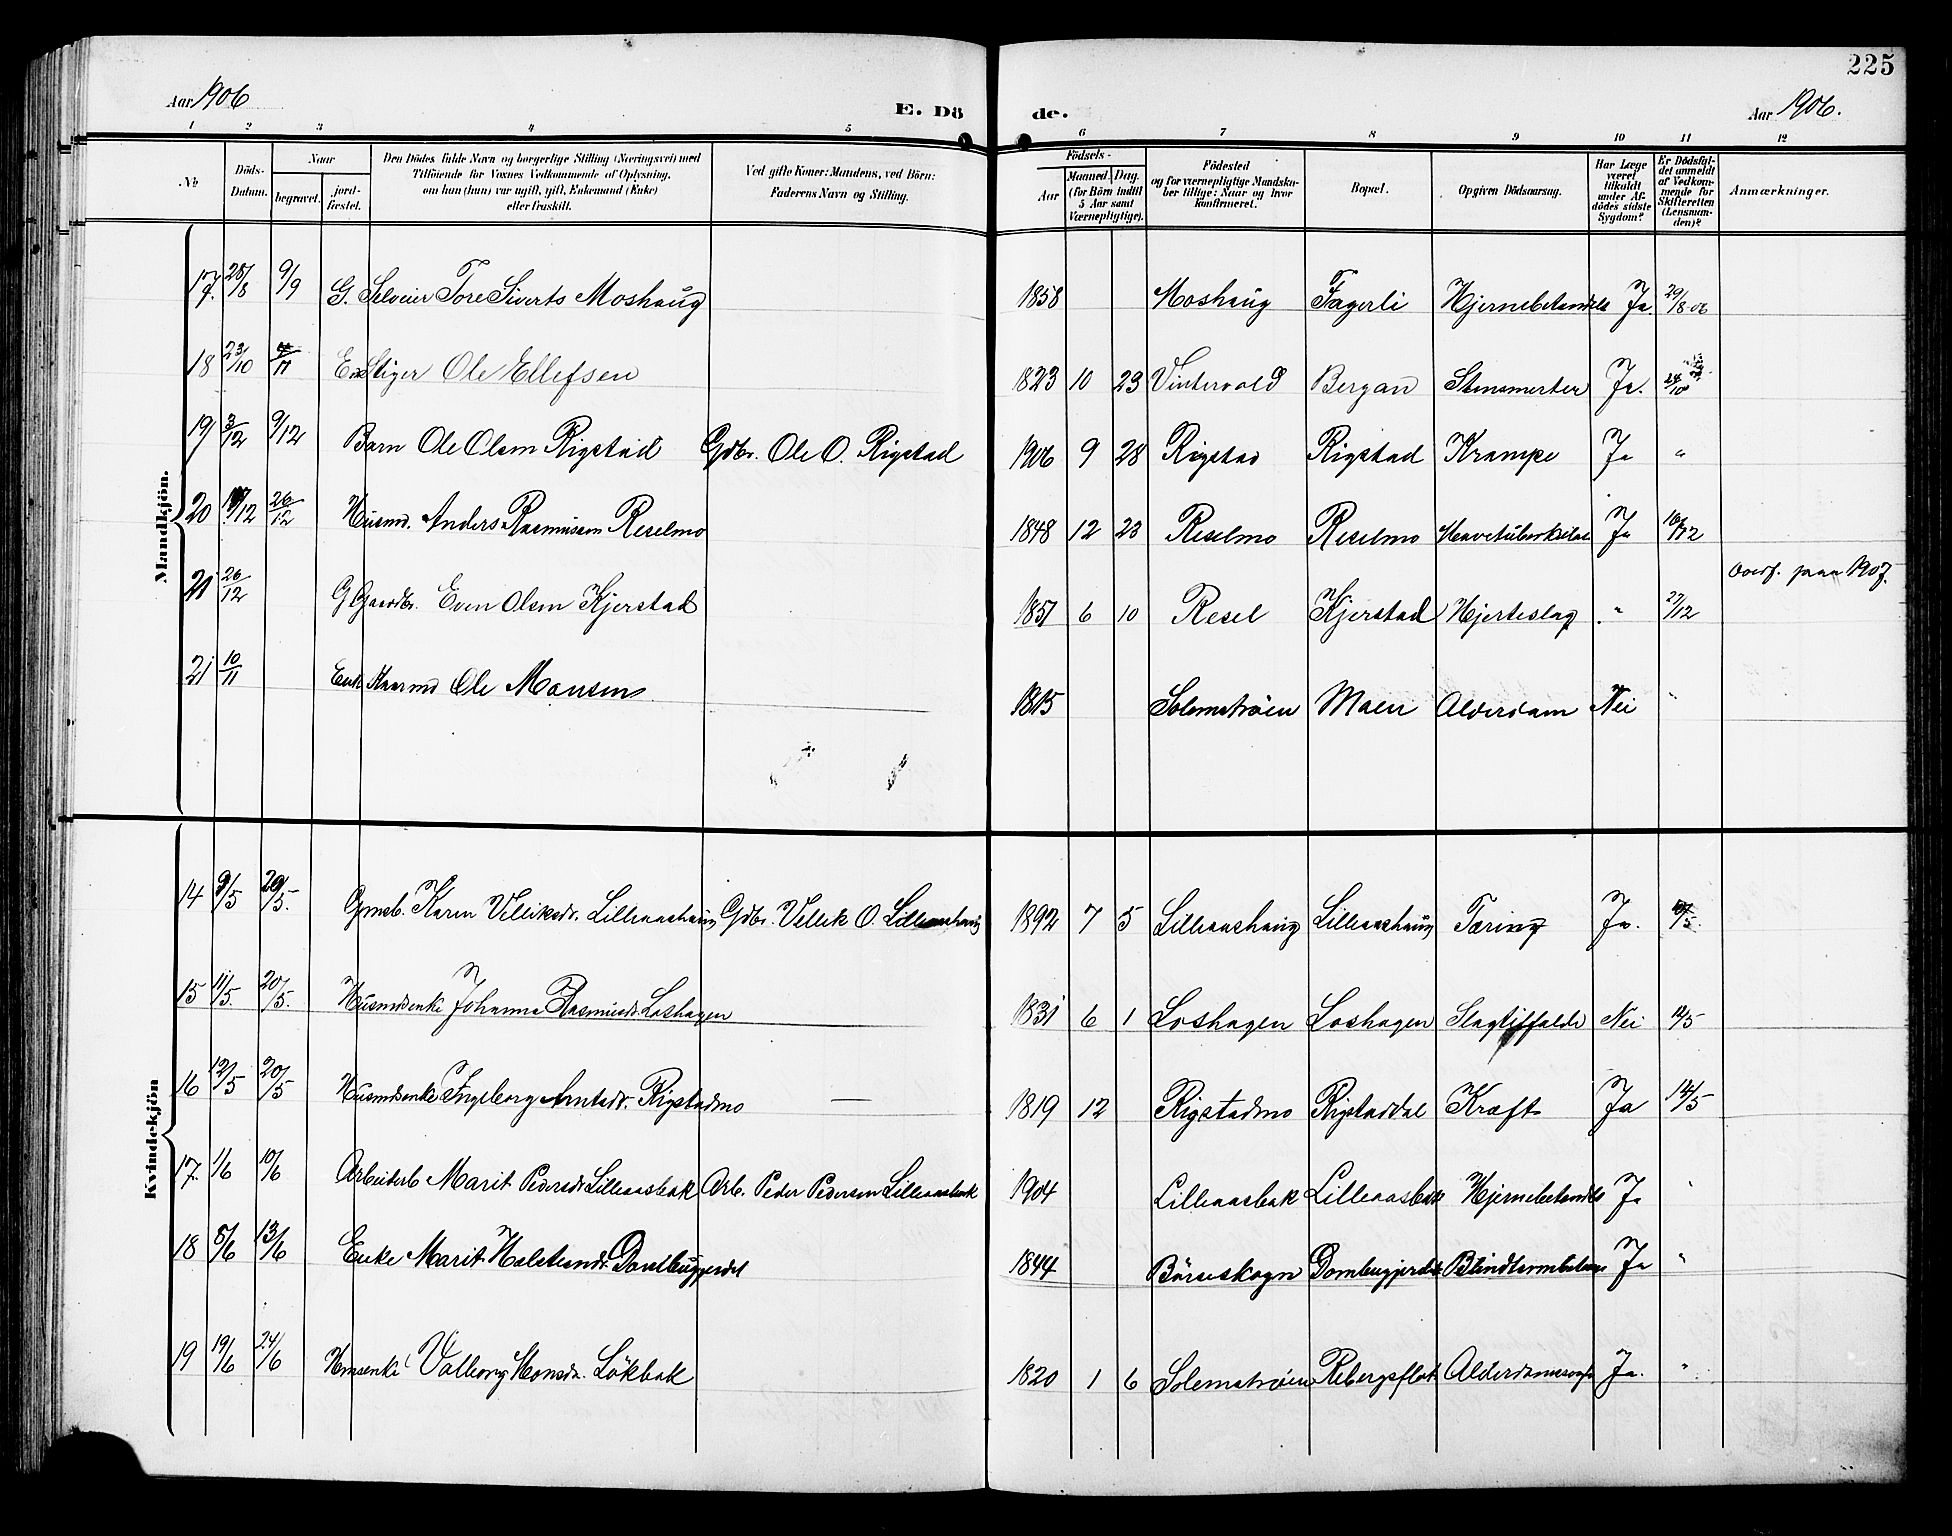 225
Aar 1906
E. Dö de.
Aar 1906.
1 2 3 4 5 6 7 8 9 10 11 12
No
Döds-Datum.
Naar
begravet.
jord-fæstet.
Den Dödes fulde Navn og borgerlige Stilling (Næringsvei) med Tilföiende for Voxnes Vedkommende af Oplysning, om han (hun) var ugift, gift, Enkemand (Enke) eller fraskilt.
Ved gifte Koner: Mandens, ved Börn: Faderens Navn og Stilling.
Födsels-
Aar
Maaned. Dag.
(for Börn indtil 5 Aar samt Værnepligtige).
Födested og for værnepligtige Mandskaber tillige: Naar og hvor konfirmeret.
Bopæl.
Opgiven Dödsaarsag.
Har Læge været tilkaldt under Afdödes sidste Sygdom?
Er Dödsfaldet anmeldt af Vedkommende for Skifteretten (Lensmanden)?
Anmærkninger.
Mandkjön.
17. 28/8 9/9 G. Selveier Tore Siverts Moshaug 1858 Moshaug Fagerli Hjernebetændelse Ja. 29/8 06
18 23/10 4/11 Stiger Ole Ellefsen 1823 10 23 Vintervold Bergan Stensmerter Ja. 24/10
19 3/12 9/12 Barn Ole Olsen Rigstad Gdbr. Ole O. Rigstad 1906 9 28 Rigstad Rigstad Krampe Ja "
20 /12 26/12 Husmd. Anders Rasmussen Reselmo 1848 12 23 Reselmo Reselmo Ja /12
21 26/12 G Gaardbr. Even Olsen Kjerstad 1851 6 10 Resel Kjerstad Hjerteslag " 27/12 Overf. paa 1907.
21 10/11 Ole Monsen 1815 Solemstrøen Moen Alderdom Nei "
Kvindekjön
14 9/5 20/5. Gmsb. Karen Villiksdr. Lilleaashaug Gdbr. Villik O. Lilleaashaug 1892 7 5 Lilleaashaug Lilleaashaug Tæring Ja. /5.
15 11/5 20/5. Husmdsenke Johanna Rasmusdr Loshagen 1831 6 1 Loshagen Loshagen Slagtilfælde Nei 12/5
16 12/5 20/5 Husmdsenke Ingeborg Arntsdr. Rigstadmo — 1819 12 Rigstadmo Rigstaddal Kræft Ja 14/5
17. 1/6 10/6 Arbeiderb Marit Pedersdr Lilleaasbak Arb. Peder Pedersen Lilleaasbak 1904 Lilleaasbak Lilleaasbak Hjernebetændelse Ja "
18 5/6 13/6 Enke Marit Halsteinsdr. 1844 Börseskogn Ja "
19 19/6 24/6 Hmsenke Valborg Monsdr. Lökbak 1820 1 6 Solemstrøen Rebergsflot Ja. "